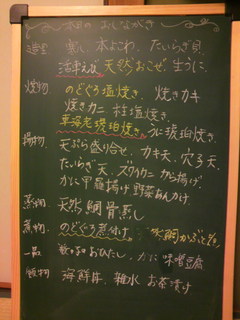 本日の おしながき
造里 鮑い、本まぐろ、たいらぎ貝
活車えび 天然おこぜ、生うに
焼物 のどぐろ塩焼き、焼きカキ
焼きカニ 柱塩焼き
車海老琥珀焼き うに琥珀焼き
揚物 天ぷら盛り合せ、カキ天、穴子天
たいらぎ天、ズワイカニから揚げ
かに甲羅揚げ 野菜あんかけ
蒸物 天然鯛骨蒸し
煮物 のどぐろ煮付け 鯛かぶと煮
一品 おひたし、かに味噌豆腐
飯物 海鮮丼、雑炊 お茶漬け